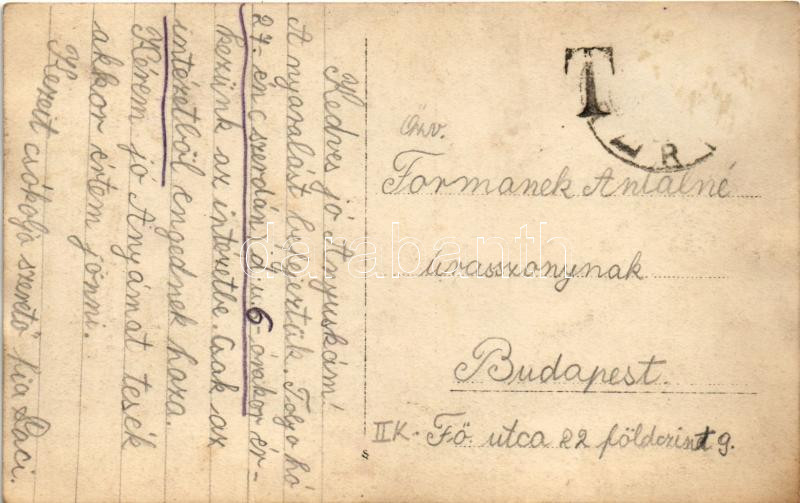 Kedves jó Anyuskám!
A nyaralást befejeztük. Folyó hó
27.-én (szerdán) d.u. 6-órakor ér-
kezünk az intézetbe. Csak az
intézetből engednek haza.
Kérem jó Anyámat tessék
akkor értem jönni.
Kezeit csókolja szerető fia Laci.
T
R
Özv.
Formanek Antalné
úrasszonynak
Budapest.
II K. Fő utca 22 földszint 9.
darabanth